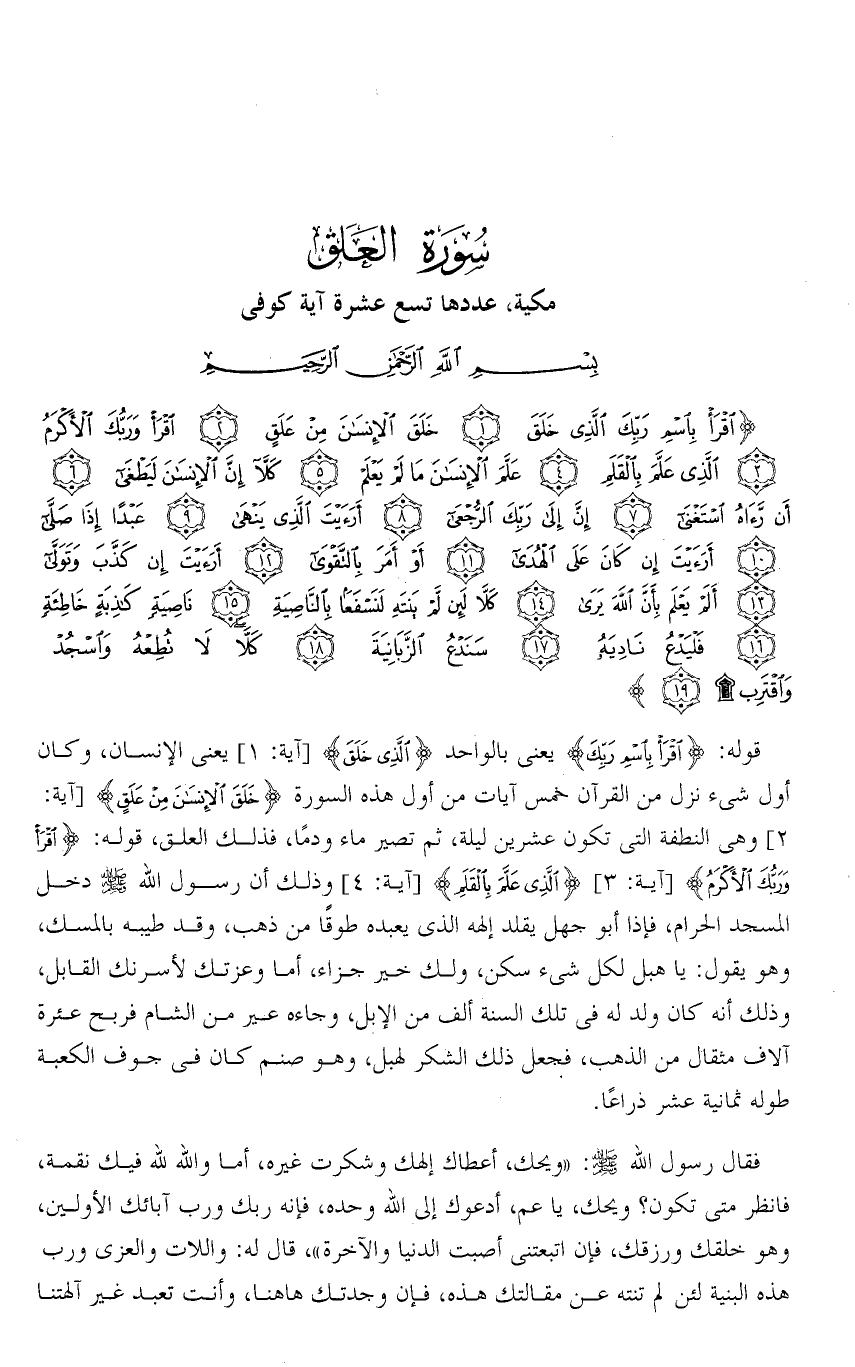 سُورَةُ العَلَق
مكية، عددها تسع عشرة آية كوفى
بِسْمِ ٱللَّهِ ٱلرَّحْمَٰنِ ٱلرَّحِيمِ
﴿ٱقْرَأْ بِٱسْمِ رَبِّكَ ٱلَّذِى خَلَقَ ١ خَلَقَ ٱلْإِنسَٰنَ مِنْ عَلَقٍ ٢ ٱقْرَأْ وَرَبُّكَ ٱلْأَكْرَمُ
٣ ٱلَّذِى عَلَّمَ بِٱلْقَلَمِ ٤ عَلَّمَ ٱلْإِنسَٰنَ مَا لَمْ يَعْلَمْ ٥ كَلَّآ إِنَّ ٱلْإِنسَٰنَ لَيَطْغَىٰٓ ٦
أَن رَّءَاهُ ٱسْتَغْنَىٰٓ ٧ إِنَّ إِلَىٰ رَبِّكَ ٱلرُّجْعَىٰٓ ٨ أَرَءَيْتَ ٱلَّذِى يَنْهَىٰ ٩ عَبْدًا إِذَا صَلَّىٰٓ
١٠ أَرَءَيْتَ إِن كَانَ عَلَى ٱلْهُدَىٰٓ ١١ أَوْ أَمَرَ بِٱلتَّقْوَىٰٓ ١٢ أَرَءَيْتَ إِن كَذَّبَ وَتَوَلَّىٰٓ
١٣ أَلَمْ يَعْلَم بِأَنَّ ٱللَّهَ يَرَىٰ ١٤ كَلَّا لَئِن لَّمْ يَنتَهِ لَنَسْفَعًۢا بِٱلنَّاصِيَةِ ١٥ نَاصِيَةٍ كَٰذِبَةٍ خَاطِئَةٍ
١٦ فَلْيَدْعُ نَادِيَهُۥ ١٧ سَنَدْعُ ٱلزَّبَانِيَةَ ١٨ كَلَّا لَا تُطِعْهُ وَٱسْجُدْ
وَٱقْتَرِب۩ ١٩ ﴾
قوله: ﴿ٱقْرَأْ بِٱسْمِ رَبِّكَ﴾ يعنى بالواحد ﴿ٱلَّذِى خَلَقَ﴾ [آية: ١] يعنى الإنسان، وكان
أول شىء نزل من القرآن خمس آيات من أول هذه السورة ﴿خَلَقَ ٱلْإِنسَٰنَ مِنْ عَلَقٍ﴾ [آية:
٢] وهى النطفة التى تكون عشرين ليلة، ثم تصير ماء ودمًا، فذلك العلق، قوله: ﴿ٱقْرَأْ
وَرَبُّكَ ٱلْأَكْرَمُ﴾ [آية: ٣] ﴿ٱلَّذِى عَلَّمَ بِٱلْقَلَمِ﴾ [آية: ٤] وذلك أن رسول الله ﷺ دخل
المسجد الحرام، فإذا أبو جهل يقلد إلهه الذى يعبده طوقًا من ذهب، وقد طيبه بالمسك،
وهو يقول: يا هبل لكل شىء سكن، ولك خير جزاء، أما وعزتك لأسرنك القابل،
وذلك أنه كان ولد له فى تلك السنة ألف من الإبل، وجاءه عير من الشام فربح عشرة
آلاف مثقال من الذهب، فجعل ذلك الشكر لهبل، وهو صنم كان فى جوف الكعبة
طوله ثمانية عشر ذراعًا.
فقال رسول الله ﷺ: «ويحك، أعطاك إلهك وشكرت غيره، أما والله لله فيك نقمة،
فانظر متى تكون؟ ويحك، يا عم، أدعوك إلى الله وحده، فإنه ربك ورب آبائك الأولين،
وهو خلقك ورزقك، فإن اتبعتنى أصبت الدنيا والآخرة»، قال له: واللات والعزى ورب
هذه البنية لئن لم تنته عن مقالتك هذه، فإن وجدتك هاهنا، وأنت تعبد غير آلهتنا